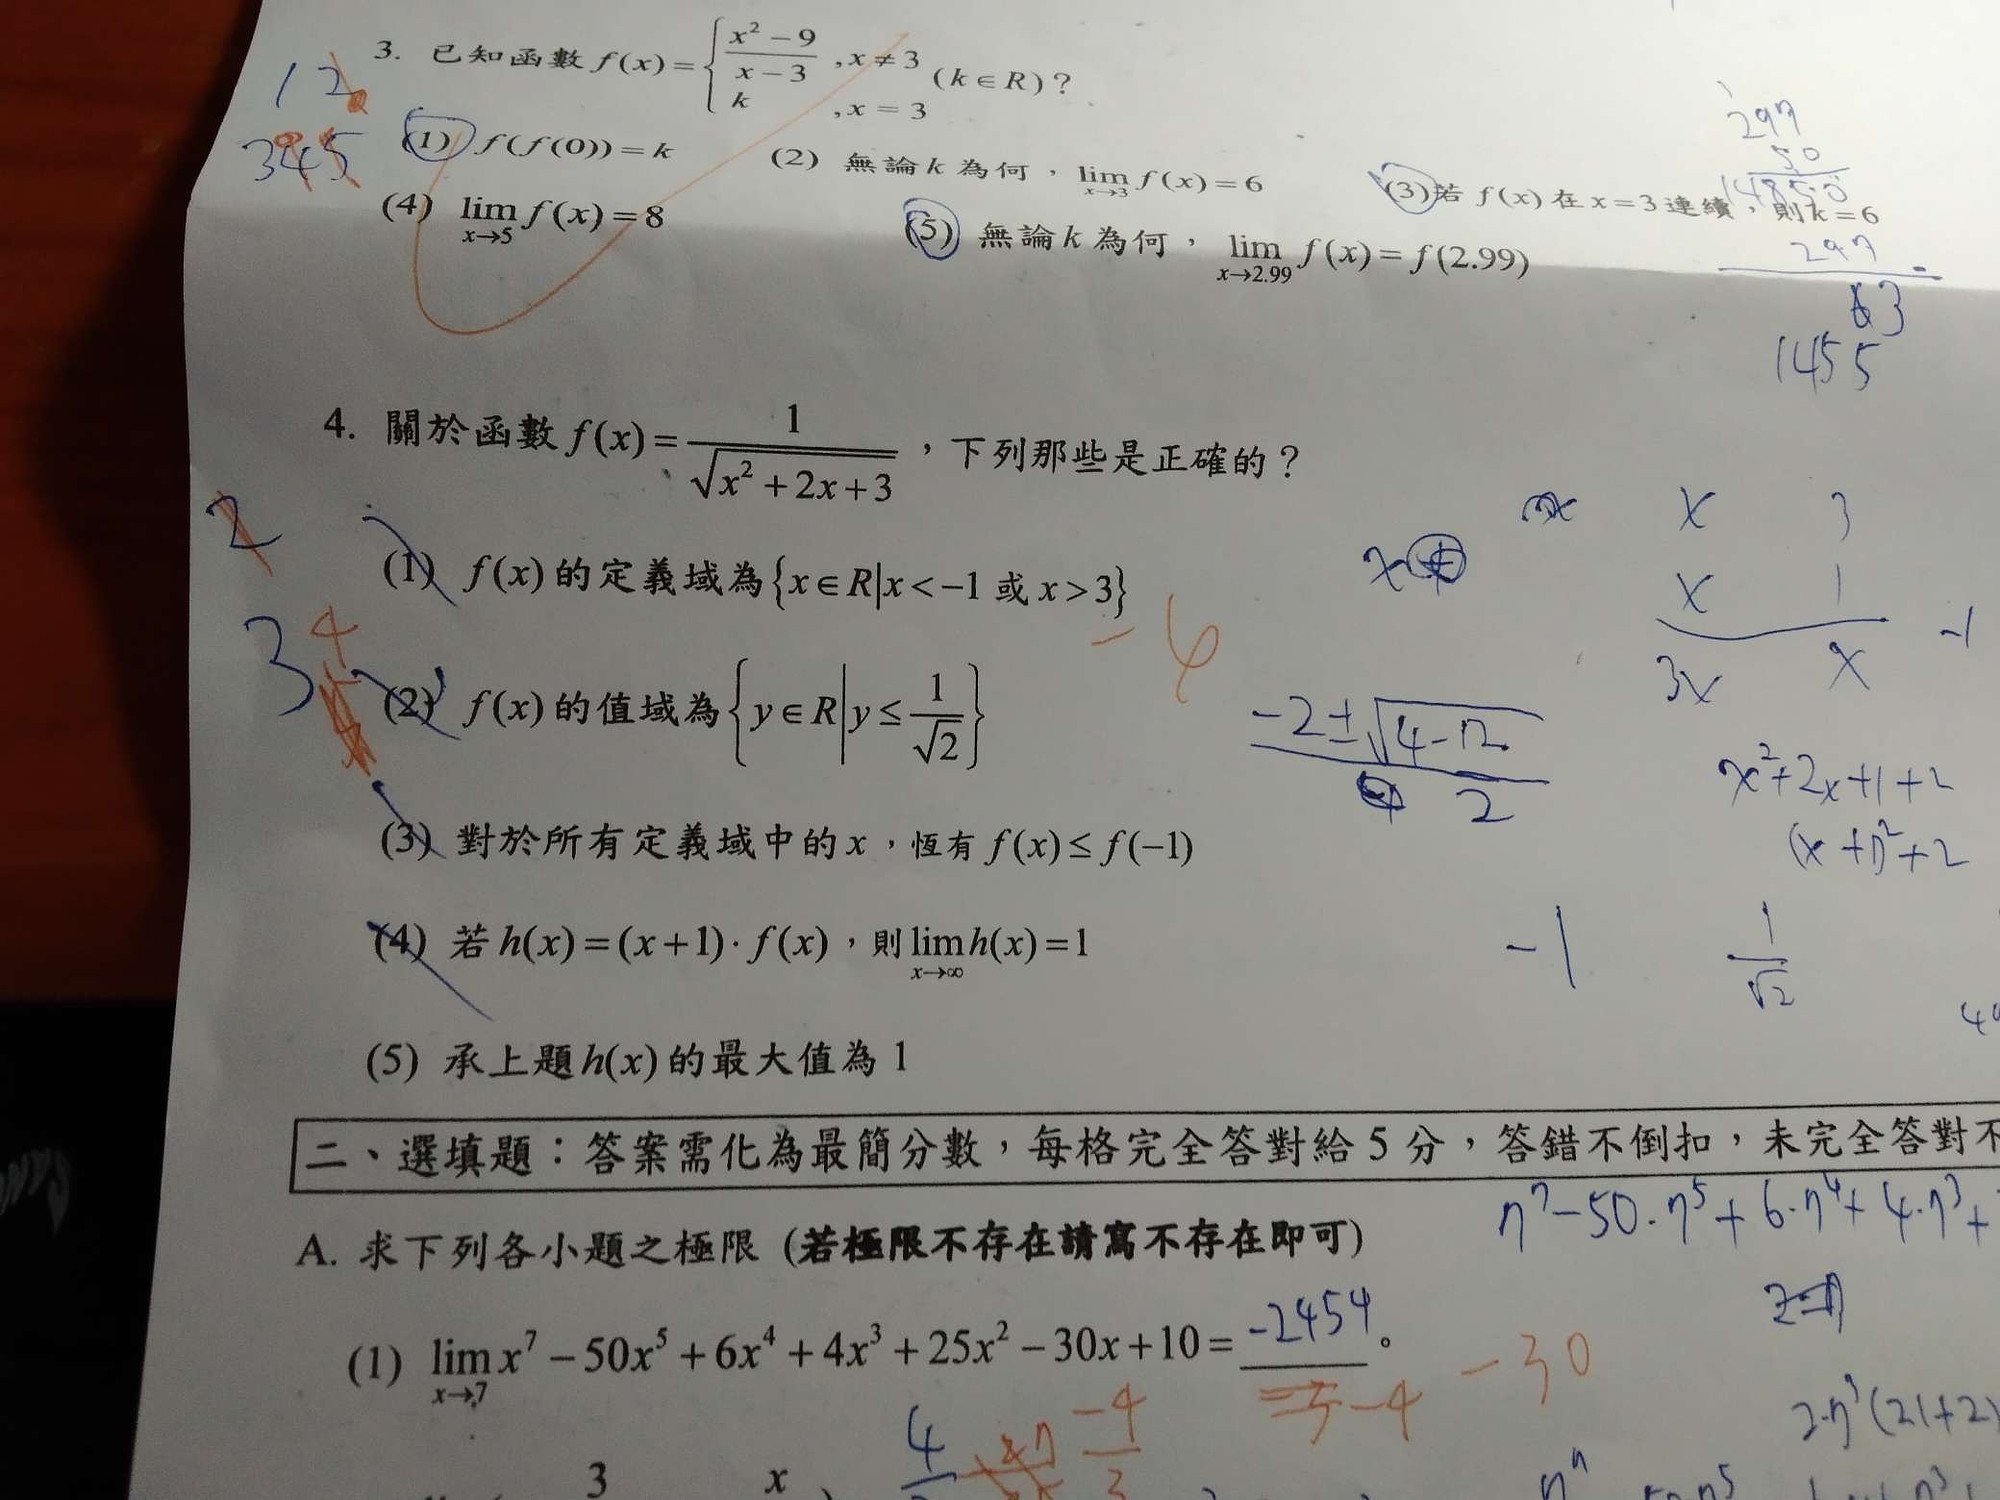 3. 已知函數 f(x) = { (x² − 9)/(x − 3) , x ≠ 3 ; k , x = 3 (k ∈ R)?
1 2
345
(1) f(f(0)) = k (2) 無論 k 為何, lim x→3 f(x) = 6 (3) 若 f(x) 在 x = 3 連續, 則 k = 6
(4) lim x→5 f(x) = 8 (5) 無論 k 為何, lim x→2.99 f(x) = f(2.99)
297
50
14850
297
63
1455
4. 關於函數 f(x) = 1/√(x² + 2x + 3) ,下列那些是正確的?
2
3 4
(1) f(x) 的定義域為 {x ∈ R | x < −1 或 x > 3}
−6
(2) f(x) 的值域為 {y ∈ R | y ≤ 1/√2}
(3) 對於所有定義域中的 x ,恆有 f(x) ≤ f(−1)
(4) 若 h(x) = (x + 1) · f(x) ,則 lim x→∞ h(x) = 1
(5) 承上題 h(x) 的最大值為 1
x 3
x 1
3x x −1
(−2 ± √(4−12))/2
x² + 2x + 1 + 2
(x + 1)² + 2
−1 1/√2
二、選填題:答案需化為最簡分數,每格完全答對給 5 分,答錯不倒扣,未完全答對不
7⁷ − 50·7⁵ + 6·7⁴ + 4·7³ +
A. 求下列各小題之極限 (若極限不存在請寫不存在即可)
(1) lim x→7 x⁷ − 50x⁵ + 6x⁴ + 4x³ + 25x² − 30x + 10 = −2454 。
−30
−4
2·7³(21+2)
3 x 4
−4/3